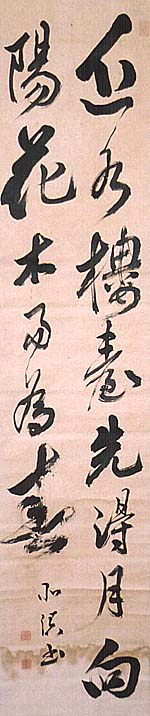 近水樓臺先得月向
陽花木易為春
書